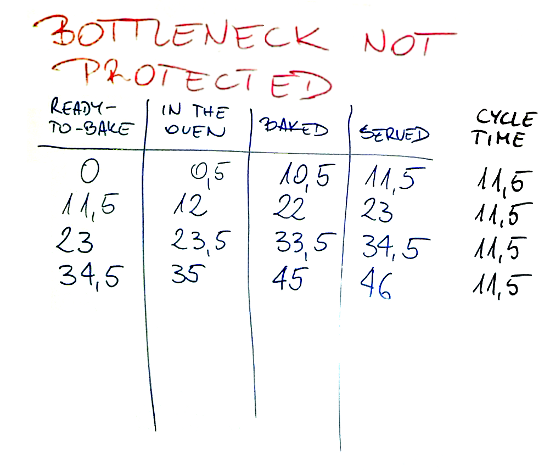 BOTTLENECK NOT
PROTECTED
READY-TO-BAKE IN THE OVEN BAKED SERVED CYCLE TIME
0 0,5 10,5 11,5 11,5
11,5 12 22 23 11,5
23 23,5 33,5 34,5 11,5
34,5 35 45 46 11,5